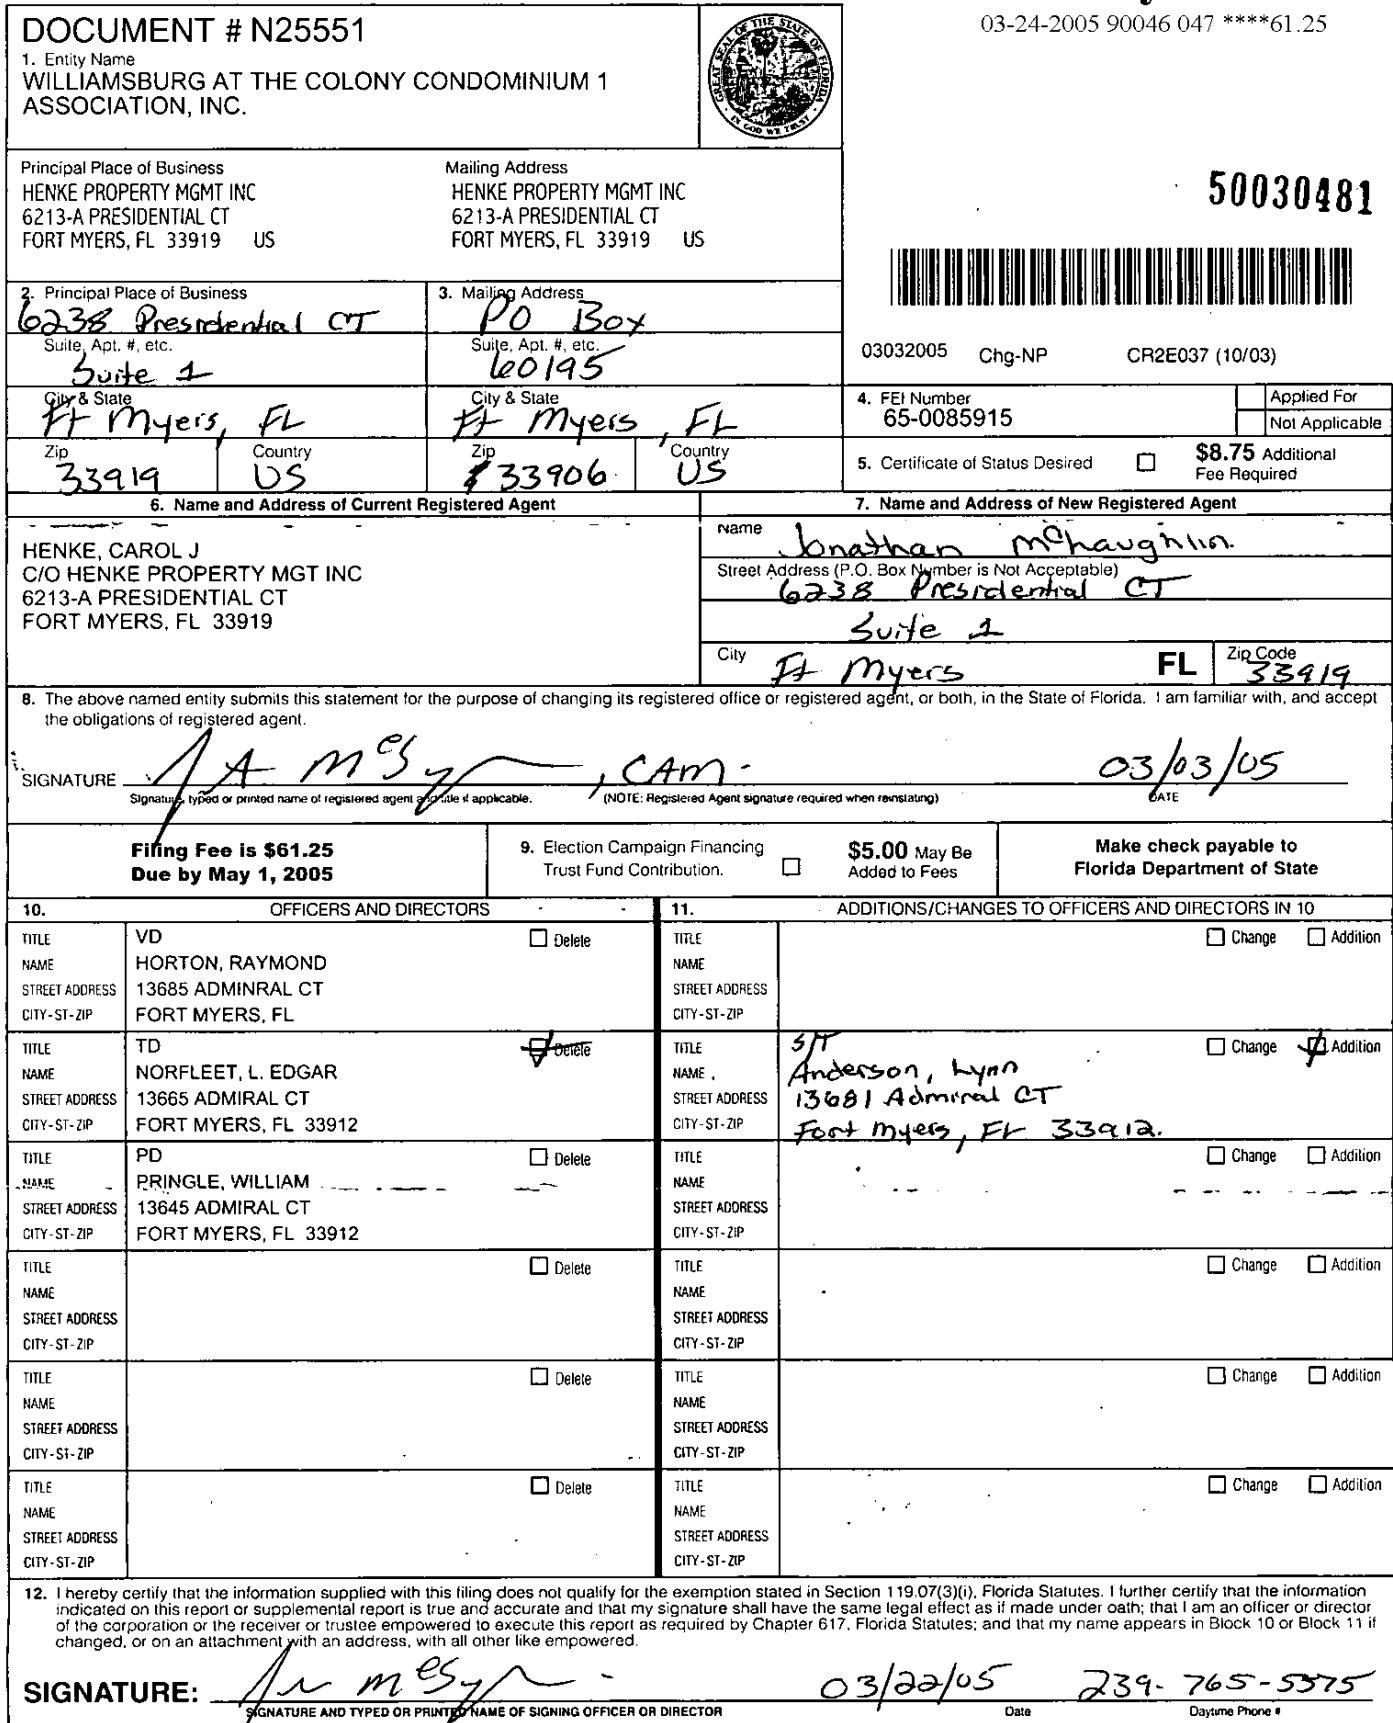 03-24-2005 90046 047 ****61.25
DOCUMENT # N25551
1. Entity Name
WILLIAMSBURG AT THE COLONY CONDOMINIUM 1
ASSOCIATION, INC.
GREAT SEAL OF THE STATE OF FLORIDA
IN GOD WE TRUST
Principal Place of Business
HENKE PROPERTY MGMT INC
6213-A PRESIDENTIAL CT
FORT MYERS, FL 33919 US
Mailing Address
HENKE PROPERTY MGMT INC
6213-A PRESIDENTIAL CT
FORT MYERS, FL 33919 US
50030481
2. Principal Place of Business
6238 Presidential CT
Suite, Apt. #, etc.
Suite 1
City & State
Ft Myers, FL
Zip
33919
Country
US
3. Mailing Address
PO Box
Suite, Apt. #, etc.
60195
City & State
Ft Myers, FL
Zip
33906
Country
US
03032005 Chg-NP CR2E037 (10/03)
4. FEI Number
65-0085915
Applied For
Not Applicable
5. Certificate of Status Desired
$8.75 Additional
Fee Required
6. Name and Address of Current Registered Agent
HENKE, CAROL J
C/O HENKE PROPERTY MGT INC
6213-A PRESIDENTIAL CT
FORT MYERS, FL 33919
7. Name and Address of New Registered Agent
Name
Jonathan McLaughlin
Street Address (P.O. Box Number is Not Acceptable)
6238 Presidential CT
Suite 1
City
Ft Myers
FL
Zip Code
33919
8. The above named entity submits this statement for the purpose of changing its registered office or registered agent, or both, in the State of Florida. I am familiar with, and accept
the obligations of registered agent.
SIGNATURE , CAM. 03/03/05
Signature, typed or printed name of registered agent and title if applicable. (NOTE: Registered Agent signature required when reinstating) DATE
Filing Fee is $61.25
Due by May 1, 2005
9. Election Campaign Financing
Trust Fund Contribution.
$5.00 May Be
Added to Fees
Make check payable to
Florida Department of State
10. OFFICERS AND DIRECTORS
11. ADDITIONS/CHANGES TO OFFICERS AND DIRECTORS IN 10
TITLE VD Delete
NAME HORTON, RAYMOND
STREET ADDRESS 13685 ADMINRAL CT
CITY-ST-ZIP FORT MYERS, FL
TITLE Change Addition
NAME
STREET ADDRESS
CITY-ST-ZIP
TITLE TD Delete
NAME NORFLEET, L. EDGAR
STREET ADDRESS 13665 ADMIRAL CT
CITY-ST-ZIP FORT MYERS, FL 33912
TITLE S/T Change Addition
NAME Anderson, Lynn
STREET ADDRESS 13681 Admiral CT
CITY-ST-ZIP Fort Myers, FL 33912.
TITLE PD Delete
NAME PRINGLE, WILLIAM
STREET ADDRESS 13645 ADMIRAL CT
CITY-ST-ZIP FORT MYERS, FL 33912
TITLE Change Addition
NAME
STREET ADDRESS
CITY-ST-ZIP
TITLE Delete
NAME
STREET ADDRESS
CITY-ST-ZIP
TITLE Change Addition
NAME
STREET ADDRESS
CITY-ST-ZIP
TITLE Delete
NAME
STREET ADDRESS
CITY-ST-ZIP
TITLE Change Addition
NAME
STREET ADDRESS
CITY-ST-ZIP
TITLE Delete
NAME
STREET ADDRESS
CITY-ST-ZIP
TITLE Change Addition
NAME
STREET ADDRESS
CITY-ST-ZIP
12. I hereby certify that the information supplied with this filing does not qualify for the exemption stated in Section 119.07(3)(i), Florida Statutes. I further certify that the information
indicated on this report or supplemental report is true and accurate and that my signature shall have the same legal effect as if made under oath; that I am an officer or director
of the corporation or the receiver or trustee empowered to execute this report as required by Chapter 617, Florida Statutes; and that my name appears in Block 10 or Block 11 if
changed, or on an attachment with an address, with all other like empowered.
SIGNATURE: 03/22/05 239-765-5375
SIGNATURE AND TYPED OR PRINTED NAME OF SIGNING OFFICER OR DIRECTOR Date Daytime Phone #